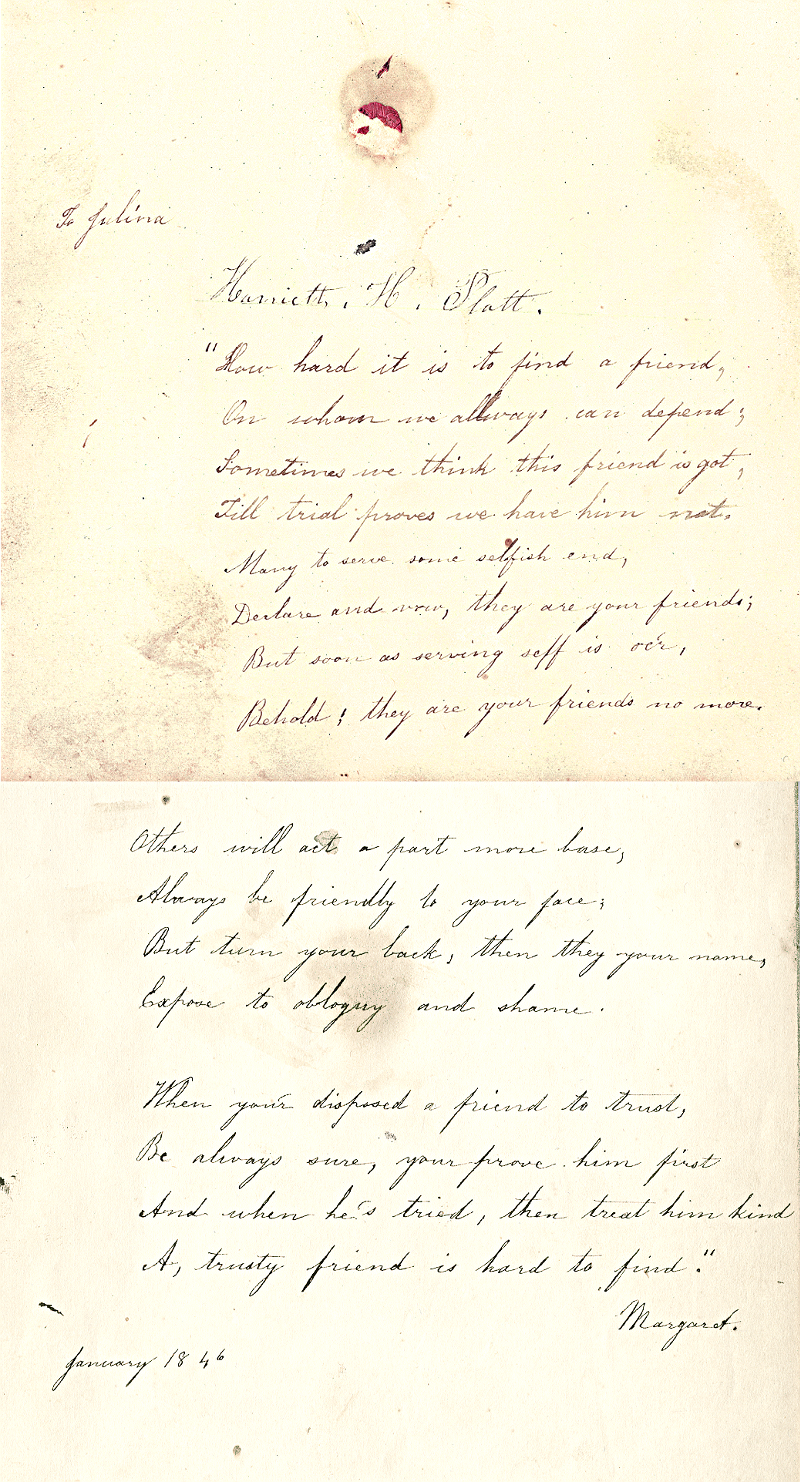 To Julina
Harriett. H. Platt.
"How hard it is to find a friend,
On whom we allways can depend;
Sometimes we think this friend is got,
Till trial proves we have him not.
Many to serve some selfish end,
Declare and vow, they are your friends;
But soon as serving self is oér,
Behold; they are your friends no more.
Others will act a part more base,
Always be friendly to your face;
But turn your back, then they your name,
Expose to obloquy and shame.
When your disposed a friend to trust,
Be always sure, your prove him first
And when he's tried, then treat him kind
A, trusty friend is hard to find."
Margaret.
January 1846